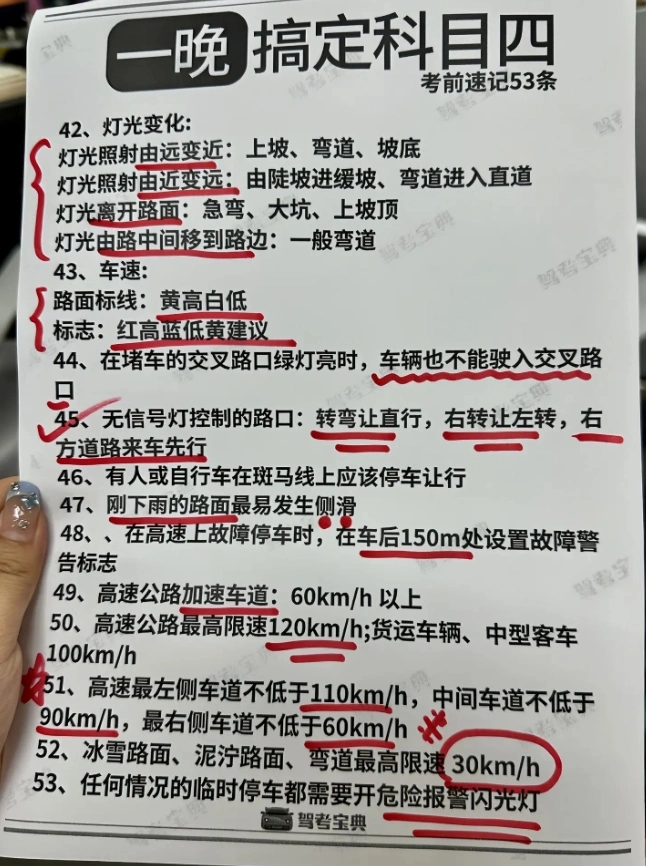 一晚 搞定科目四
考前速记53条
42、灯光变化:
灯光照射由远变近：上坡、弯道、坡底
灯光照射由近变远：由陡坡进缓坡、弯道进入直道
灯光离开路面：急弯、大坑、上坡顶
灯光由路中间移到路边：一般弯道
43、车速:
路面标线：黄高白低
标志：红高蓝低黄建议
44、在堵车的交叉路口绿灯亮时，车辆也不能驶入交叉路
口
45、无信号灯控制的路口：转弯让直行，右转让左转，右
方道路来车先行
46、有人或自行车在斑马线上应该停车让行
47、刚下雨的路面最易发生侧滑
48、、在高速上故障停车时，在车后150m处设置故障警
告标志
49、高速公路加速车道：60km/h 以上
50、高速公路最高限速120km/h;货运车辆、中型客车
100km/h
51、高速最左侧车道不低于110km/h，中间车道不低于
90km/h，最右侧车道不低于60km/h
52、冰雪路面、泥泞路面、弯道最高限速 30km/h
53、任何情况的临时停车都需要开危险报警闪光灯
驾考宝典